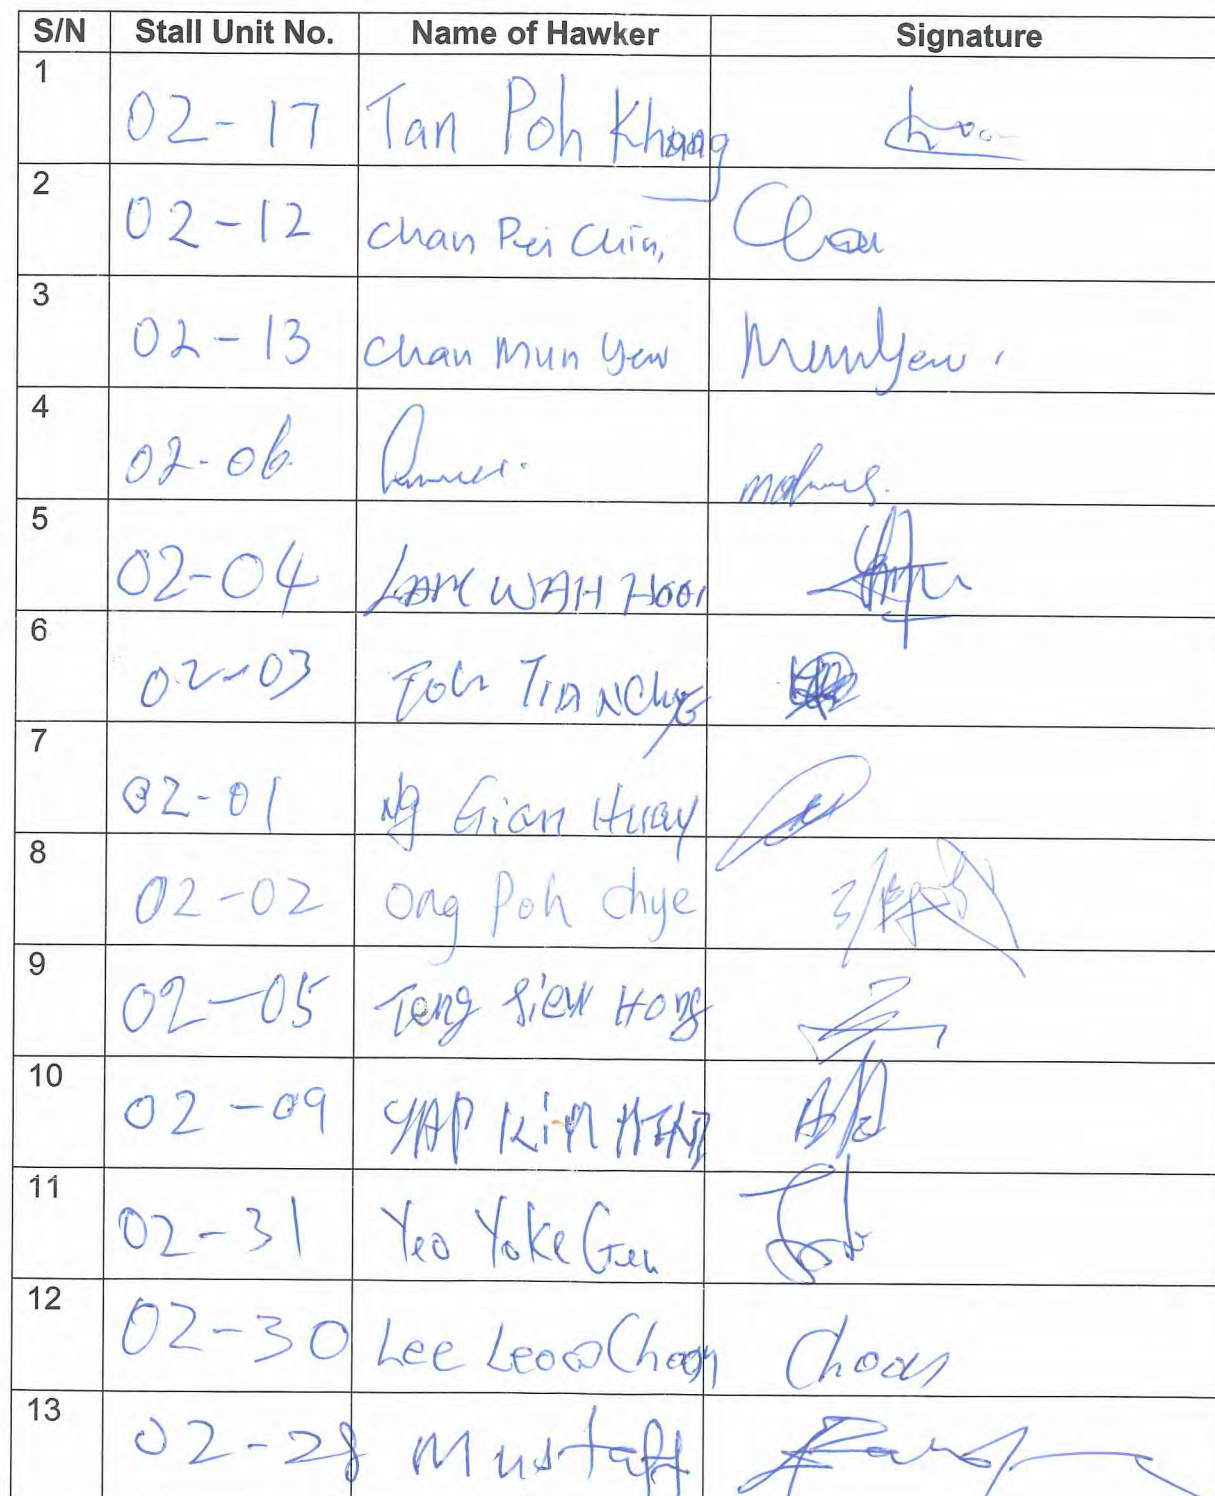 S/N Stall Unit No. Name of Hawker Signature
1 02-17 Tan Poh Khang
2 02-12 Chan Pei Chin, Chan
3 02-13 Chan Mun Yew MunYew.
4 02-06
5 02-04 LAM WAH HOOI
6 02-03 TIAN
7 02-01 Ng Gian Huay
8 02-02 Ong Poh Chye
9 02-05 Teng Siew Hong
10 02-09 YAP KIM
11 02-31 Yeo Yoke
12 02-30 Lee Choon Choon
13 02-28